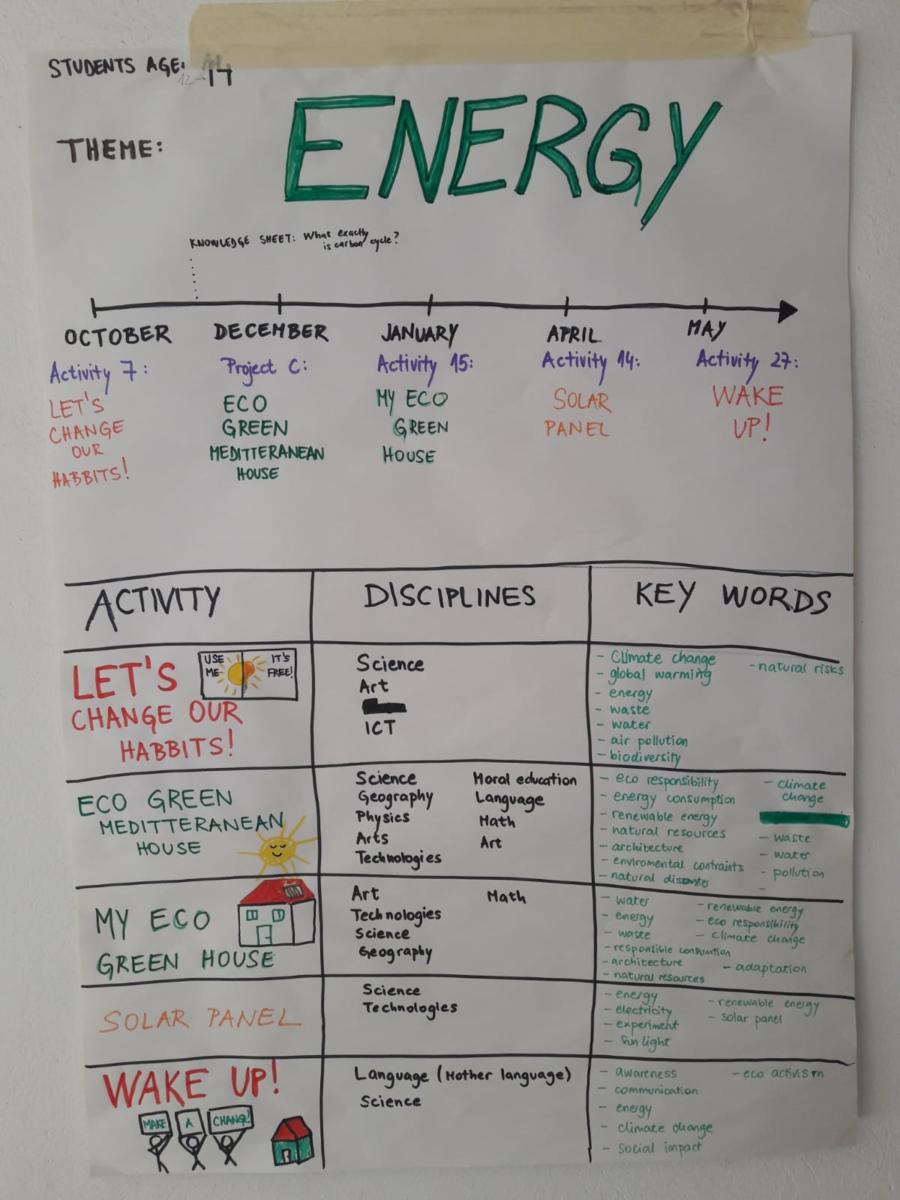 STUDENTS AGE: 12-14
THEME:
ENERGY
KNOWLEDGE SHEET: What exactly
is carbon cycle?
OCTOBER
DECEMBER
JANUARY
APRIL
MAY
Activity 7:
LET'S
CHANGE
OUR
HABBITS!
Project C:
ECO
GREEN
MEDITTERANEAN
HOUSE
Activity 15:
MY ECO
GREEN
HOUSE
Activity 14:
SOLAR
PANEL
Activity 27:
WAKE
UP!
ACTIVITY
DISCIPLINES
KEY WORDS
LET'S
CHANGE OUR
HABBITS!
USE
ME
IT'S
FREE!
Science
Art
ICT
- Climate change
- global warming
- energy
- waste
- water
- air pollution
- biodiversity
- natural risks
ECO GREEN
MEDITTERANEAN
HOUSE
Science
Geography
Physics
Arts
Technologies
Moral education
Language
Math
Art
- eco responsibility
- energy consumption
- renewable energy
- natural resources
- architecture
- enviromental contraints
- natural
- climate
change
- waste
- water
- pollution
-
MY ECO
GREEN HOUSE
Art
Technologies
Science
Geography
Math
- water
- energy
- waste
- responsible consumtion
- architecture
- natural resources
- renewable energy
- eco responsibility
- climate change
- adaptation
SOLAR PANEL
Science
Technologies
- energy
- electricity
- experiment
- sun light
- renewable energy
- solar panel
WAKE UP!
MAKE
A
CHANGE!
Language (Mother language)
Science
- awareness
- communication
- energy
- climate change
- social impact
- eco activism